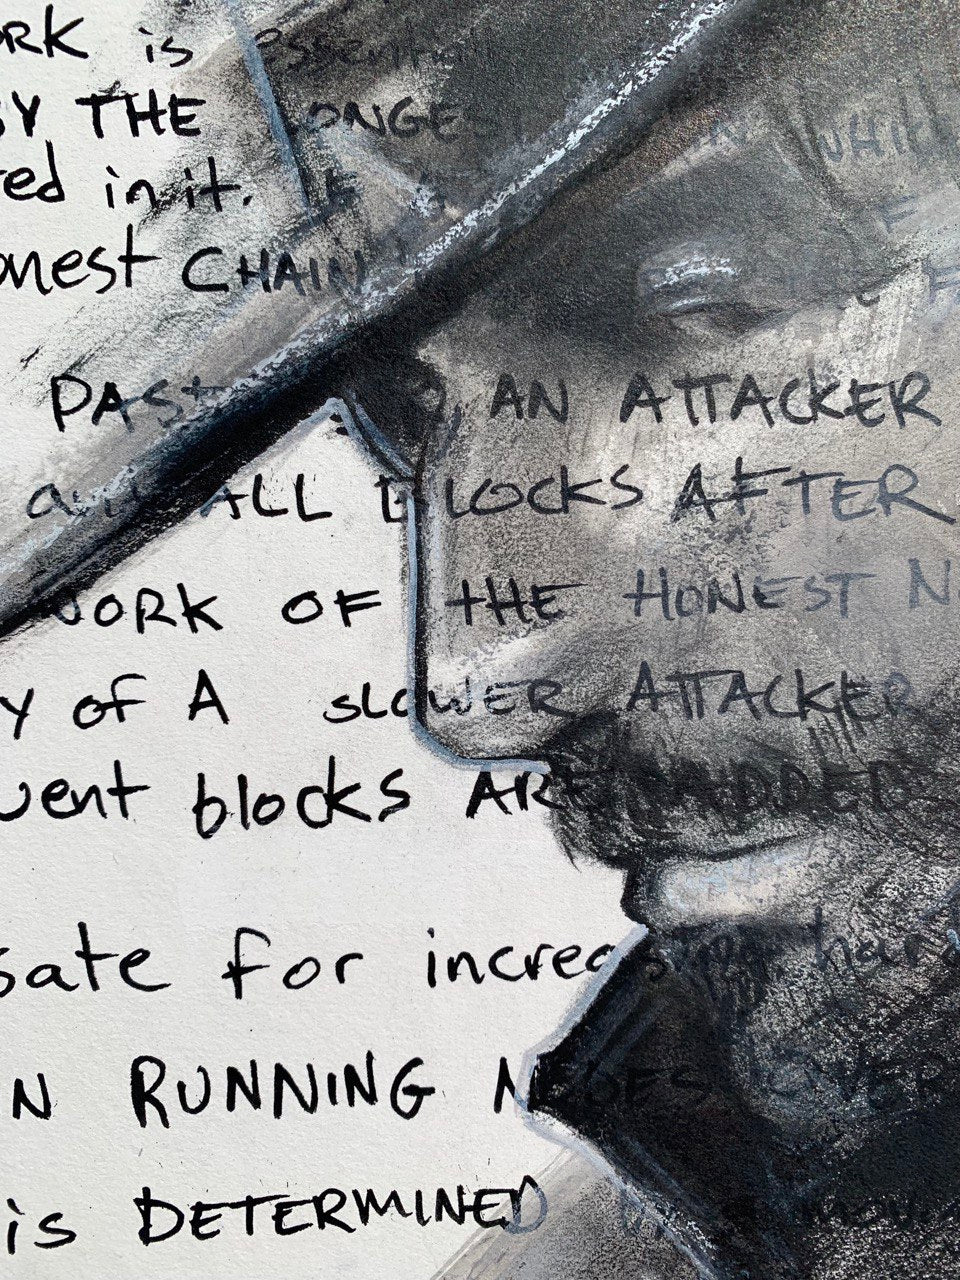 ORK is essenti
BY THE LONGEST IN WHIC
ted in it. IF
onest CHAIN
PAST AN ATTACKER
and ALL BLOCKS AFTER
WORK OF THE HONEST N
y of A SLOWER ATTACKER
uent blocks ARE ADDED
sate for increasing har
N RUNNING NODES OVER
is DETERMINED